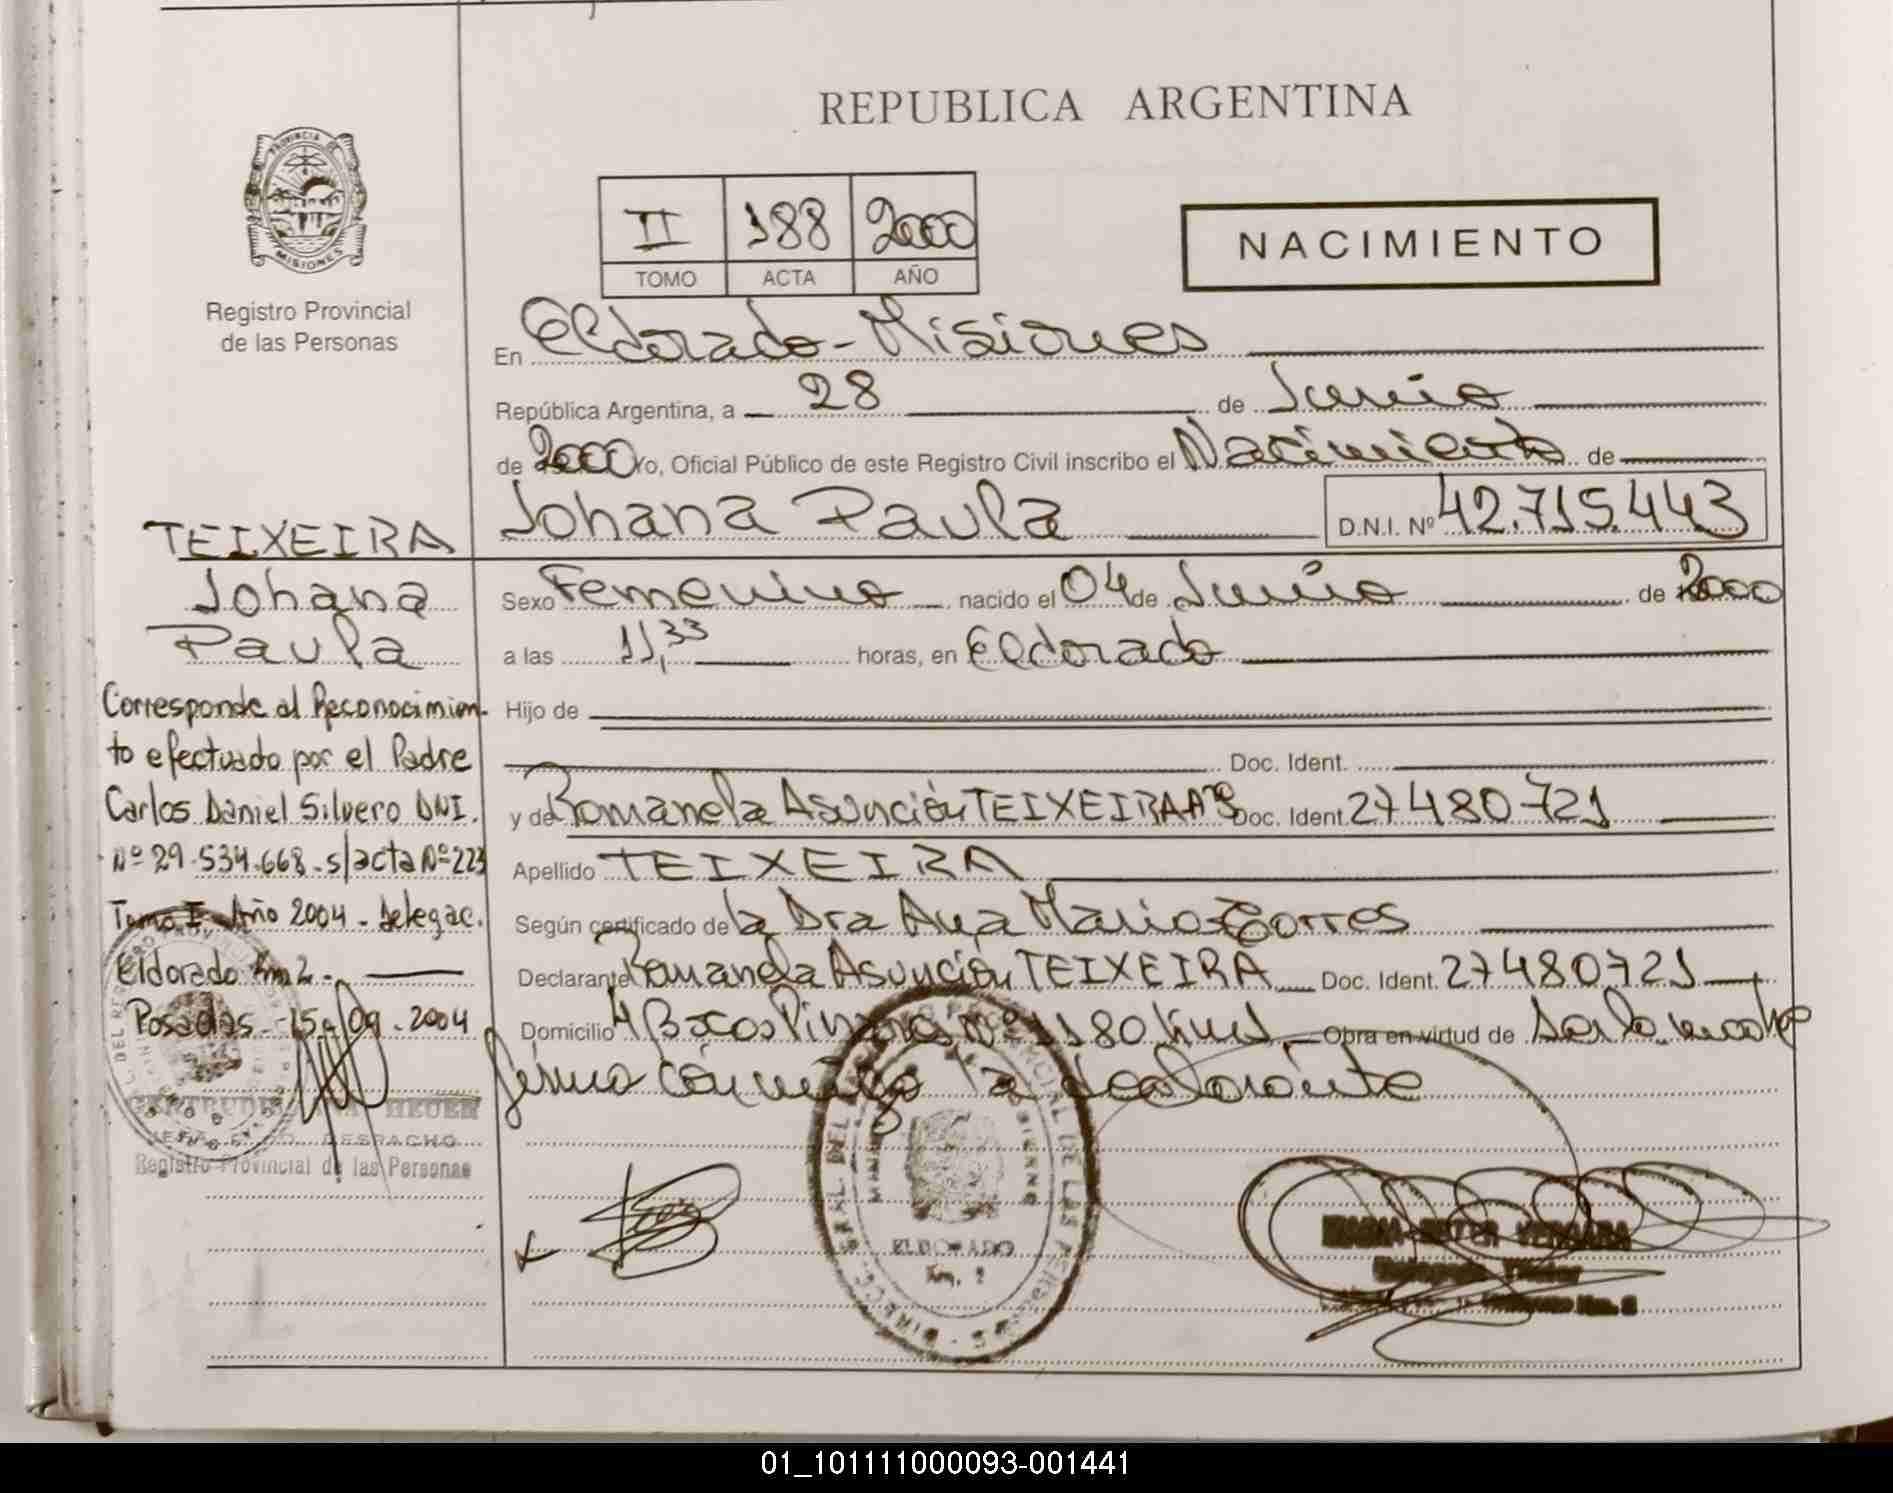 REPUBLICA ARGENTINA
PROVINCIA DE
MISIONES
Registro Provincial
de las Personas
II 188 2000
TOMO ACTA AÑO
NACIMIENTO
En Eldorado - Misiones
República Argentina, a 28 de Junio
de 2000 Yo, Oficial Público de este Registro Civil inscribo el Nacimiento de
Johana Paula D.N.I. Nº 42.715.443
Sexo Femenino nacido el 04 de Junio de 2000
a las 11,33 horas, en Eldorado
Hijo de
Doc. Ident.
y de Romanela Asunción TEIXEIRA Doc. Ident. 27480721
Apellido TEIXEIRA
Según certificado de la Dra Ana Torres
Declarante Romanela Asunción TEIXEIRA Doc. Ident. 27480721
Domicilio nº 1180 Obra en virtud de
firma conmigo la declarante
TEIXEIRA
Johana
Paula
Corresponde al Reconocimien-
to efectuado por el Padre
Carlos Daniel Silvero DNI.
Nº 29.534.668 - s/acta Nº 223
Tomo I - Año 2004 - Delegac.
Eldorado Km 2.-
Posadas - 15 - 09 - 2004
DESPACHO
Registro Provincial de las Personas
ELDORADO
Km. 2
01_101111000093-001441